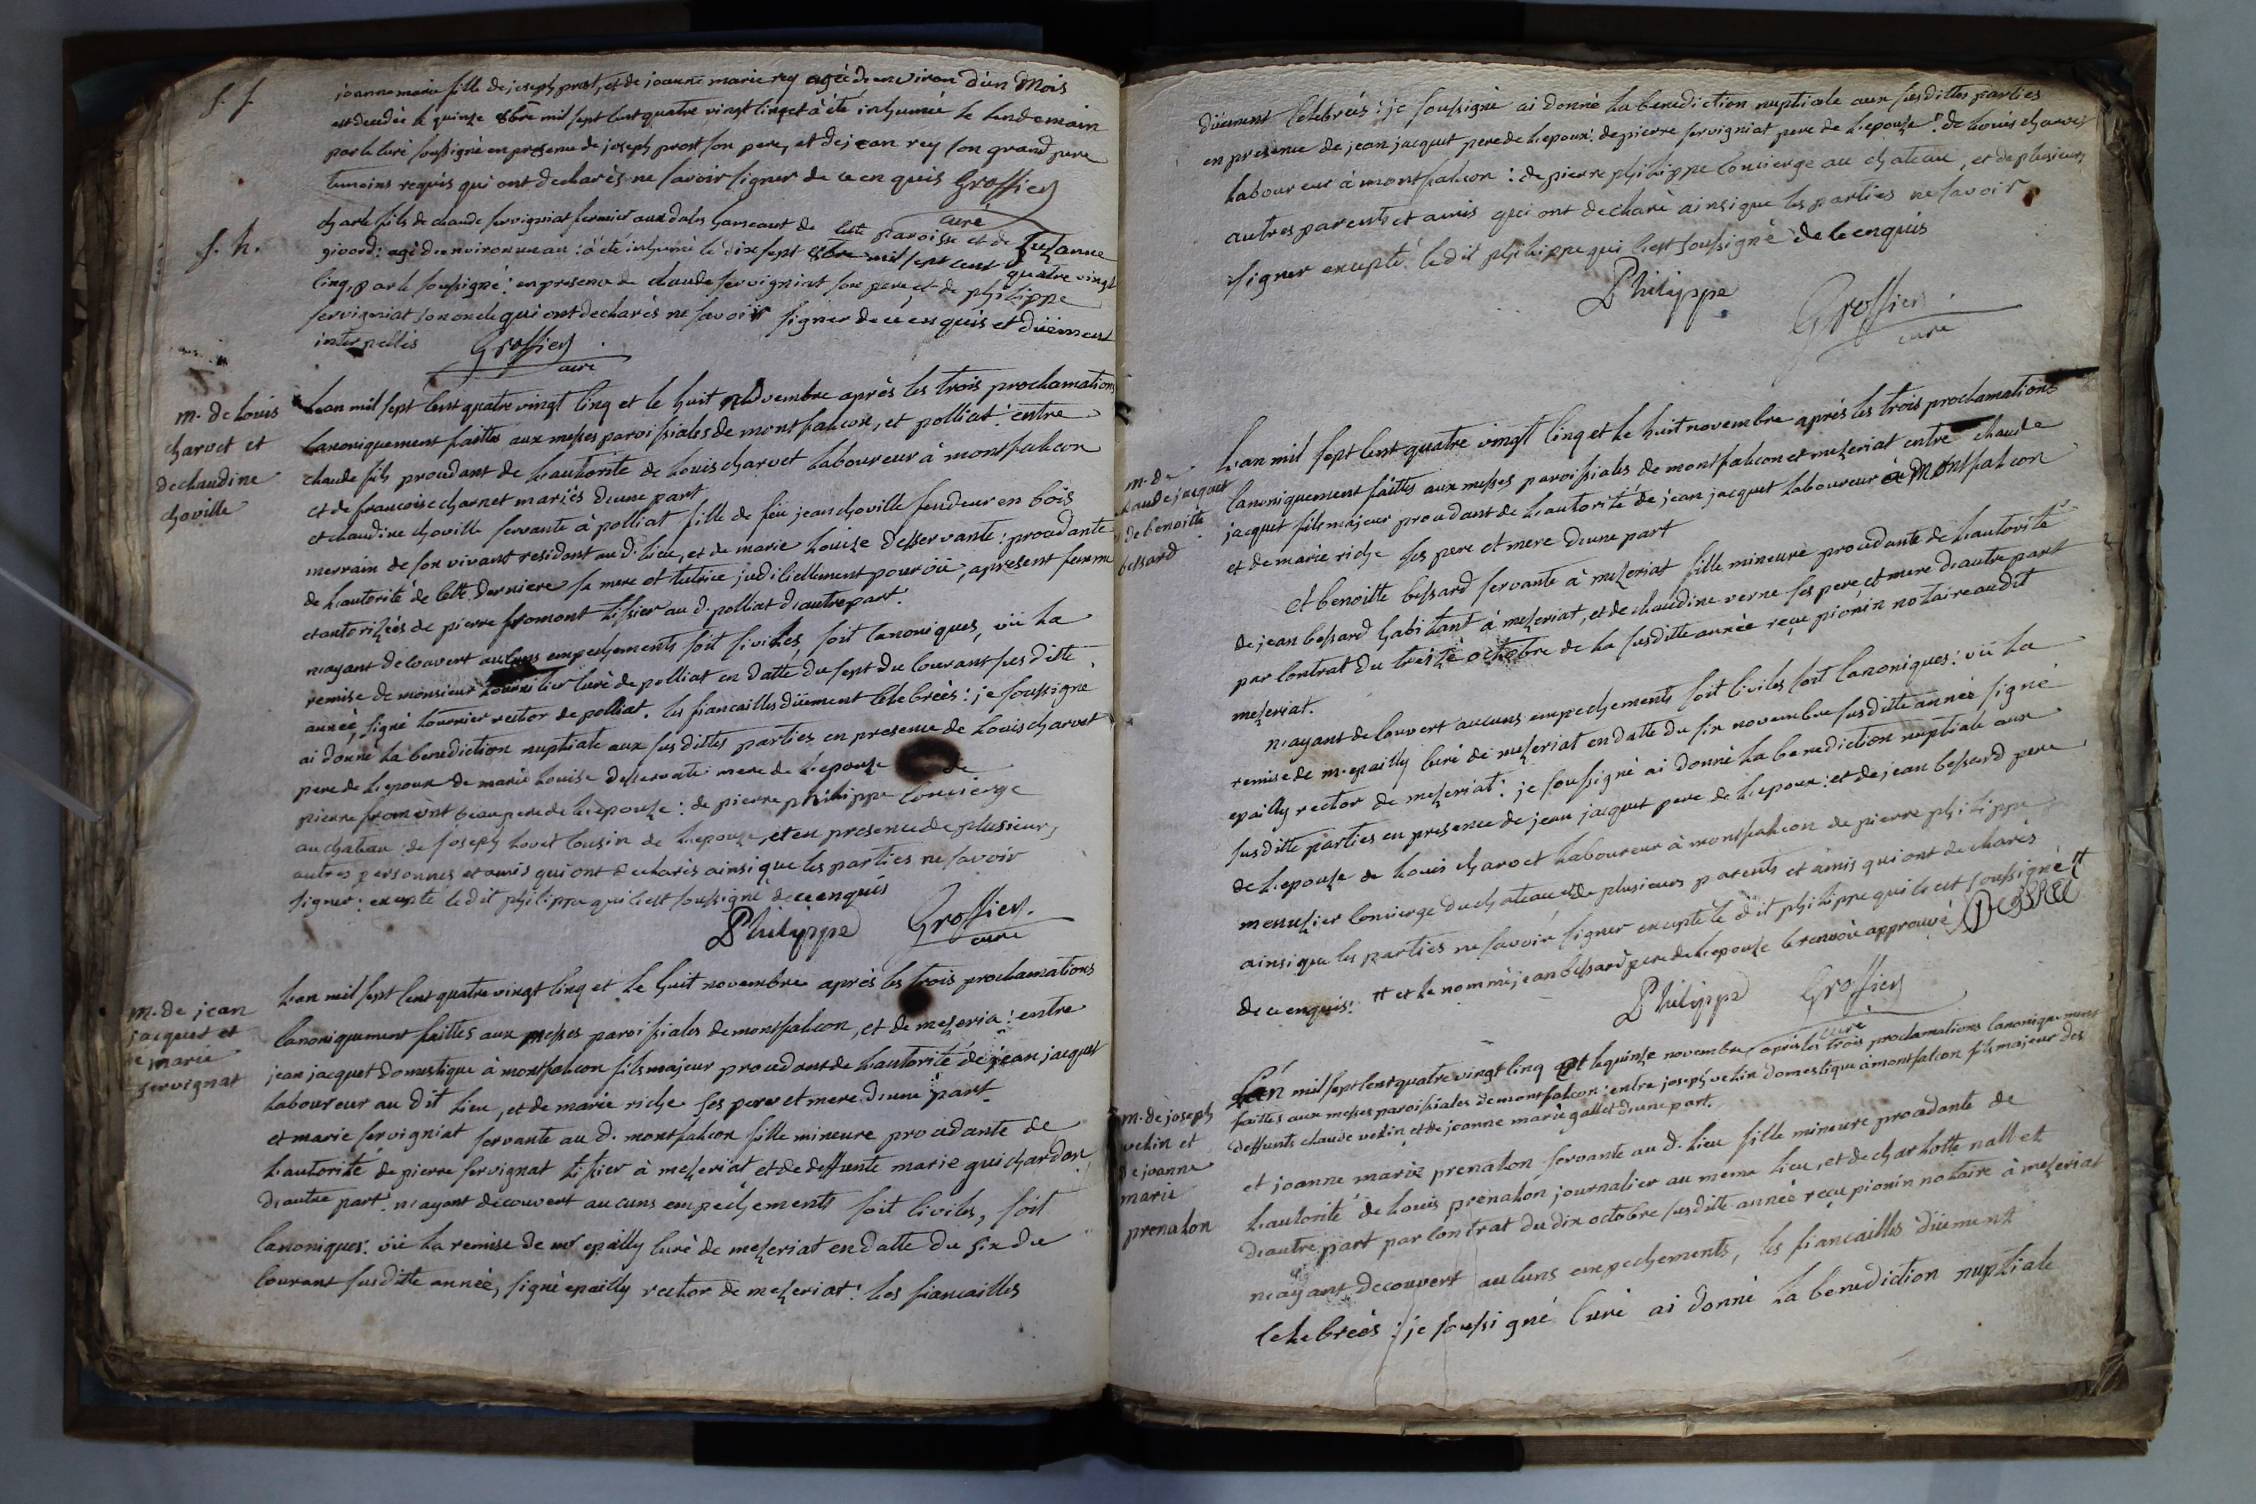 s. f.
joanne marie fille de joseph prost, et de joanne marie rey agée d'environ d'un mois
est decedée le quinze 8bre mil sept cent quatre vingt cinq et à été inhumée le lendemain
par le curé soussigné en presence de joseph prost son pere, et de jean rey son grand pere
temoins requis qui ont declarés ne savoir signer de ce enquis Groffier
curé
s. h.
charle fils de claude servigniat fermier aux dales hameaut de cette paroisse et de Suzanne
givord: agé d'environ un an: à été inhumé le dix sept 8bre mil sept cent quatre vingt
cinq, par le soussigné: en presence de claude servigniat son pere, et de philippe
servigniat son oncle qui ont declarés ne savoir signer de ce enquis et düement
interpellés Groffier
curé
m. de louis
charvet et
de claudine
choville
L'an mil sept cent quatre vingt cinq et le huit novembre après les trois proclamations
canoniquement faittes aux messes paroissiales de montfalcon, et polliat: entre
claude fils procedant de l'autorité de louis charvet laboureur à montfalcon
et de francoise charnet mariés d'une part
et claudine choville servante à polliat fille de feu jean choville fendeur en bois
merrain de son vivant residant au d. lieu, et de marie louise desservante: procedante
de l'autorité de cette derniere sa mere et tutrice judiciellement pourvüe, apresent femme
et autorizées de pierre fromont tissier au d. polliat d'autre part.
n'ayant decouvert aucuns empechements soit siviles, soit canoniques, vü la
remise de monsieur tournier curé de polliat en datte du sept du courant susditte
année, signé tournier rector de polliat. les fiancailles düement celebrées: je soussigné
ai donné la benediction nuptiale aux susdittes parties en presence de louis charvet
pere de l'epoux de marie louise desservante mere de l'epouse de
pierre fromont beaupere de l'epouse: de pierre philippe concierge
au chateau: de joseph louet cousin de l'epouse, et en presence de plusieurs
autres personnes et amis qui ont declarés ainsi que les parties ne savoir
signer: excepté le dit philippe qui c'est soussigné de ce enquis
Philippe Groffier
curé
m. de jean
jacquet et
de marie
servignat
L'an mil sept cent quatre vingt cinq et le huit novembre après les trois proclamations
canoniquement faittes aux messes paroissiales de montfalcon, et de mezeria: entre
jean jacquet domestique à montfalcon fils majeur procedant de l'autorité de jean jacquet
laboureur au dit lieu, et de marie riche ses pere et mere d'une part.
et marie servigniat servante au d. montfalcon fille mineure procedante de
l'autorité de pierre servignat tissier à mezeriat et de deffunte marie guichardon
d'autre part. n'ayant decouvert aucuns empechements soit civiles, soit
canoniques: vü la remise de mr epailly curé de mezeriat en datte du six du
courant susditte année, signé epailly rector de mezeriat: les fiancailles
düement celebrées: je soussigné ai donné la benediction nuptiale aux susdittes parties
en presence de jean jacquet pere de l'epoux: de pierre servigniat pere de l'epouse: de louis charvet
laboureur à montfalcon: de pierre philippe concierge au chateau, et de plusieurs
autres parents et amis qui ont declaré ainsi que les parties ne savoir
signer excepté le dit philippe qui c'est soussigné de ce enquis
Philippe Groffier
curé
m. de
claude jacquet
de benoitte
bessard
L'an mil sept cent quatre vingt cinq et le huit novembre aprés les trois proclamations
canoniquement faittes aux messes paroissiales de montfalcon et mezeriat entre claude
jacquet fils majeur procedant de l'autorité de jean jacquet laboureur à montfalcon
et de marie riche ses pere et mere d'une part
et benoitte bessard servante à mezeriat fille mineure procedante de l'autorité
de jean bessard habitant à mezeriat, et de claudine verne ses pere, et mere d'autre part
par contrat du treize octobre de la susditte année reçu pionin notaire audit
mezeriat.
n'ayant decouvert aucuns empechements soit civiles soit canoniques: vü la
remise de m. epailly curé de mezeriat en datte du six novembre susditte année signé
epailly rector de mezeriat: je soussigné ai donné la benediction nuptiale aux
susditte parties en presence de jean jacquet pere de l'epoux: et de jean bessard pere
de l'epouse de louis charvet laboureur à montfalcon de pierre philippe
menusier concierge du chateau et de plusieurs parents et amis qui ont declarés
ainsi que les parties ne savoir signer excepté le dit philippe qui c'est soussigné #
de ce enquis. # et le nommé jean bessard pere de l'epouse le renvoi approuvé
Philippe Groffier
curé
m. de joseph
velin et
de joanne
marie
prenalon
L'an mil sept cent quatre vingt cinq et le quinze novembre, après les trois proclamations canoniquement
faittes aux messes paroissiales de montfalcon: entre joseph velin domestique à montfalcon fils majeur des
deffunts claude velin et de joanne marie gallet d'une part.
et joanne marie prenalon servante au d. lieu fille mineure procedante de
l'autorité de louis prenalon journalier au meme lieu, et de charlotte nallet
d'autre part par contrat du dix octobre susditte année reçu pionin notaire à mezeriat
n'ayant decouvert aucuns empechements, les fiancailles düement
celebreés: je soussigné curé ai donné la benediction nuptiale